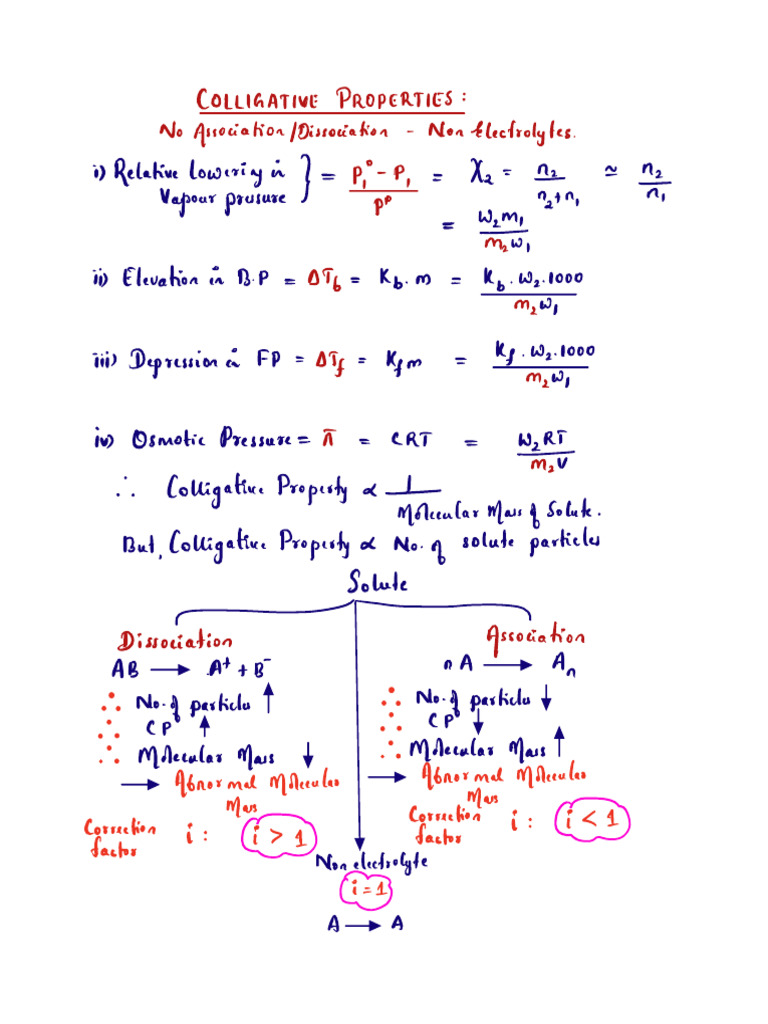 COLLIGATIVE PROPERTIES:
No Association/Dissociation - Non Electrolytes.
i) Relative Lowering in Vapour pressure } = P₁° - P₁ / P° = X₂ = n₂ / n₂+n₁ ≃ n₂ / n₁
= W₂M₁ / M₂W₁
ii) Elevation in B.P = ΔT_b = K_b.m = K_b.W₂.1000 / M₂W₁
iii) Depression in FP = ΔT_f = K_f m = K_f.W₂.1000 / M₂W₁
iv) Osmotic Pressure = π = CRT = W₂RT / M₂V
∴ Colligative Property ∝ 1 / Molecular Mass of Solute.
But, Colligative Property ∝ No. of solute particles
Solute
Dissociation
AB → A⁺ + B⁻
∴ No. of particles ↑
∴ CP ↑
∴ Molecular Mass ↓
→ Abnormal Molecular Mass
Correction factor i: i > 1
Association
nA → Aₙ
∴ No. of particles ↓
∴ CP ↓
∴ Molecular Mass ↑
→ Abnormal Molecular Mass
Correction factor i: i < 1
Non electrolyte
i = 1
A → A